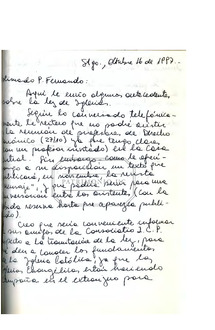 Stgo., Octubre 16 de 1997.-
Estimado P. Fernando:
Aquí le envío algunos antecedentes
sobre la ley de Iglesias.
Según lo conversado telefónica-
mente, le reitero que no podré asistir
la reunión de profesores de Derecho
Canónico (27/10) ya que tengo clases
un profesor invitado) en la casa
Sin embargo, como le ofrecí
a su disposición un texto que
publicará, en noviembre, la revista
y que podría servir para una
conversación entre los asistentes, (con la
reserva hasta que aparezca publi-
Creo que sería conveniente informar
sus amigos de la Consociatio I.C.P.
respecto a la tramitación de la ley, para
den a conocer los fundamentos
la Iglesia Católica, ya que los
evangélicos están haciendo
campaña en el extranjero para